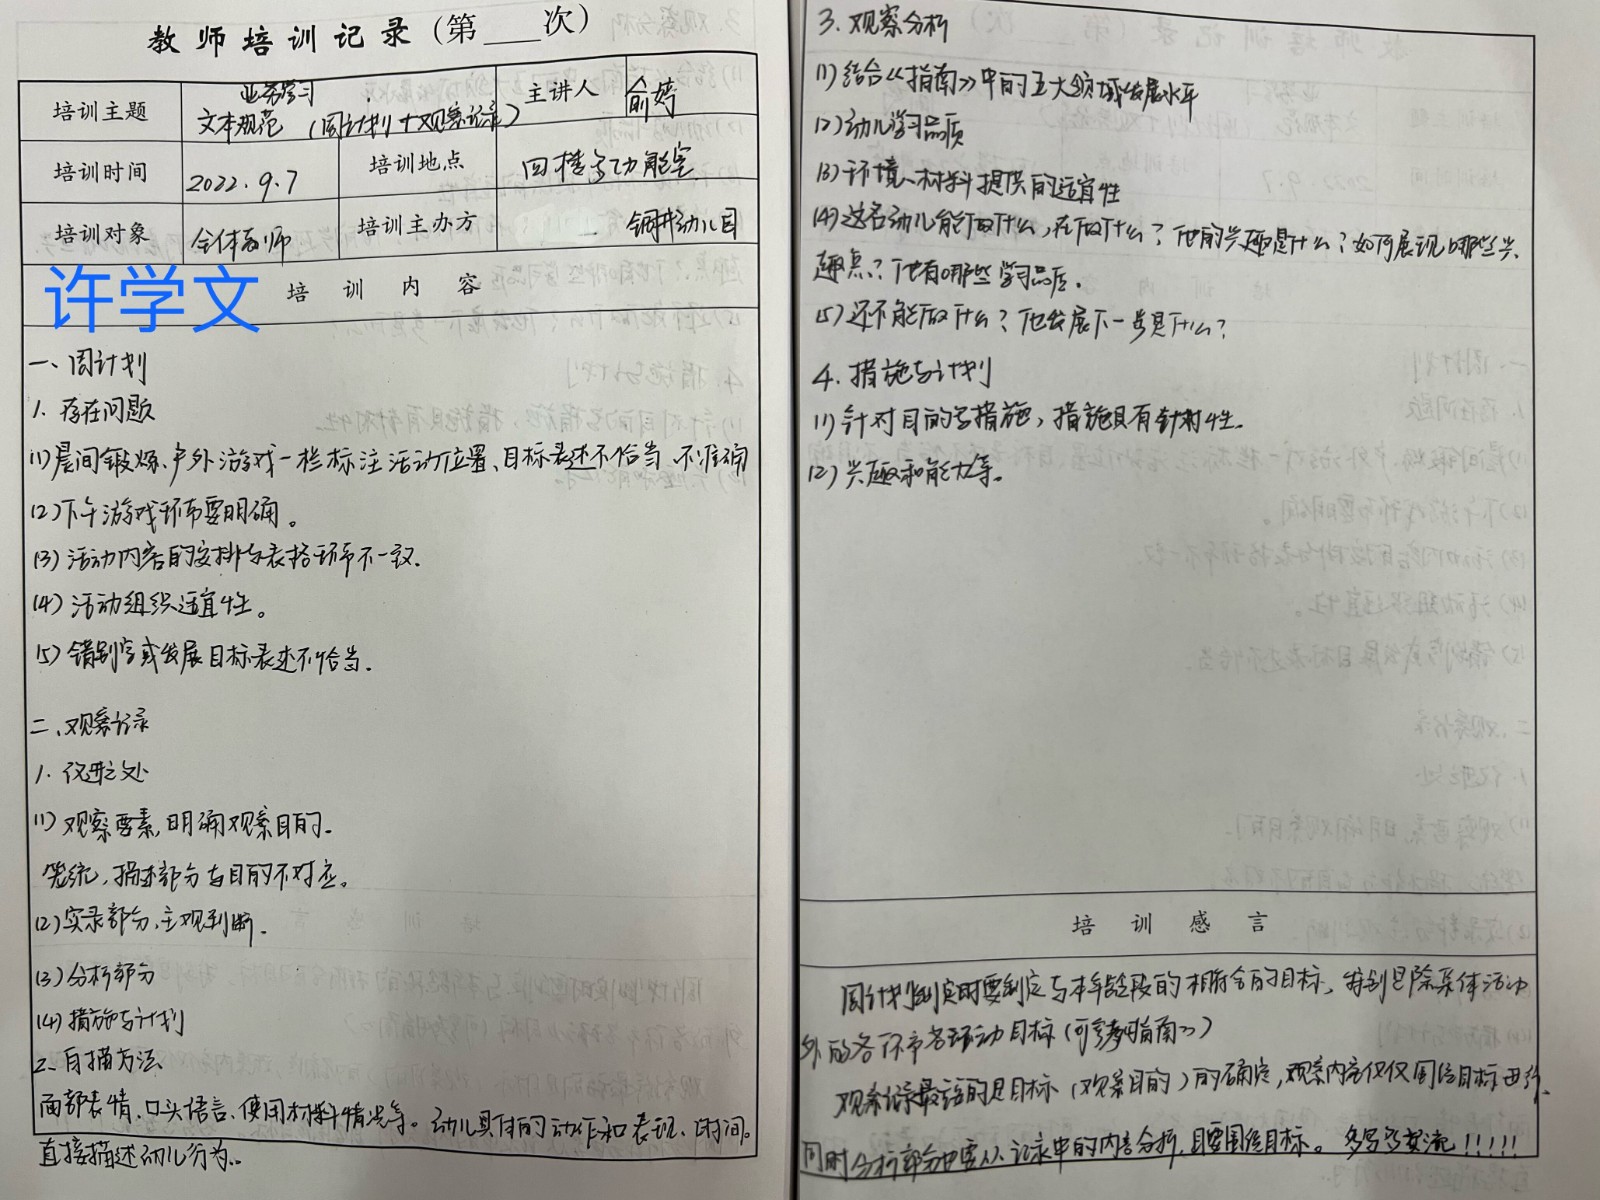 教师培训记录(第___次)
培训主题
业务学习
文本规范(周计划+观察记录)
主讲人
俞婷
培训时间
2022.9.7
培训地点
四楼多功能室
培训对象
全体教师
培训主办方
铜井幼儿园
许学文
培训内容
一、周计划
1. 存在问题
(1)晨间锻炼、户外游戏一栏标注活动位置、目标表述不恰当、不准确
(2)下午游戏环节要明确。
(3)活动内容的安排与表格环节不一致.
(4)活动组织适宜性。
(5)错别字或发展目标表述不恰当.
二、观察记录
1. 改进之处
(1)观察要素,明确观察目的.
笼统,描述部分与目的不对应。
(2)实录部分、主观判断.
(3)分析部分
(4)措施与计划
2. 白描方法
面部表情、口头语言、使用材料情况等。幼儿具体的动作和表现、时间。
直接描述幼儿行为..
3. 观察分析
(1)结合《指南》中的五大领域发展水平
(2)幼儿学习品质
(3)环境、材料提供的适宜性
(4)这名幼儿能做什么,在做什么?他的兴趣是什么?如何展现哪些兴
趣点?他有哪些学习品质.
(5)还不能做什么?他发展下一步是什么?
4. 措施与计划
(1)针对目的写措施,措施具有针对性.
(2)兴趣和能力等。
培训感言
周计划制定时要制定与本年龄段的相符合的目标,特别是除集体活动
外的各环节各项活动目标(可参考《指南》)
观察记录最主要的是目标(观察目的)的确定,观察内容仅仅围绕目标进行.
同时分析部分也要从记录中的内容分析,且要围绕目标。多写多交流!!!!!